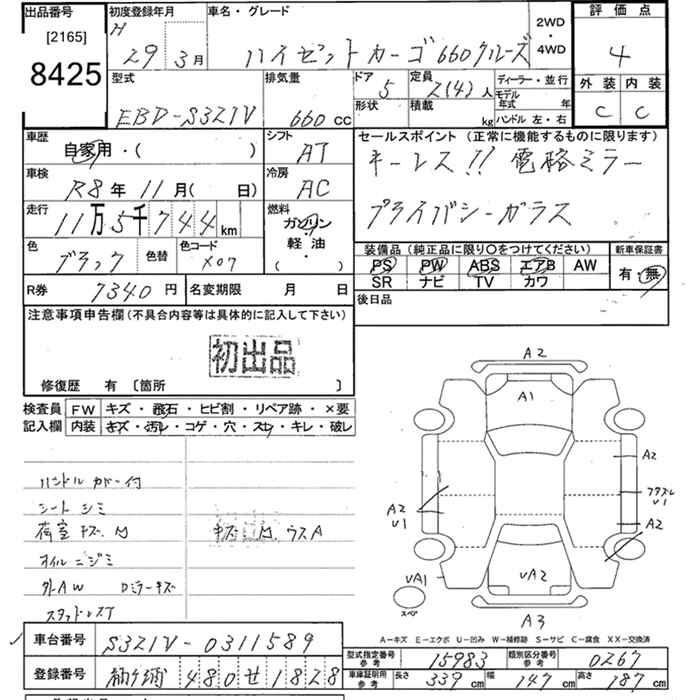 出品番号
[2165]
8425
初度登録年月
H
29 3月
車名・グレード
ハイゼットカーゴ 660クルーズ
2WD
・
4WD
評価点
4
外装 内装
C C
型式
EBD-S321V
排気量
660 cc
ドア
5
定員
2(4)人
形状
積載
kg
ディーラー・並行
モデル
年式 年
ハンドル 左・右
車歴
自家用・( )
シフト
AT
車検
R8年11月( 日)
冷房
AC
走行
11万5千744km
燃料
ガソリン
軽油
( )
色
ブラック
色替
色コード
X07
R券
7340円
名変期限 月 日
セールスポイント(正常に機能するものに限ります)
キーレス!! 電格ミラー
プライバシーガラス
装備品(純正品に限り〇をつけてください)
PS PW ABS エアB AW
SR ナビ TV カワ
新車保証書
有・無
後日品
注意事項申告欄(不具合内容等は具体的に記入して下さい)
初出品
修復歴 有〔箇所 〕
検査員
記入欄
FW キズ・飛石・ヒビ割・リペア跡・×要
内装 キズ・汚レ・コゲ・穴・スレ・キレ・破レ
ハンドルカバー付
シートシミ
荷室キズM
オイルニジミ
外AW Dミラーキズ
スタッドレスT
A2
A1
A2
U1
A2
U1
A2
UA1
UA2
スペア
A3
A-キズ E-エクボ U-凹み W-補修跡 S-サビ C-腐食 XX-交換済
車台番号
S321V-0311589
登録番号
480せ1828
型式指定番号
参考
15983
類別区分番号
参考
0267
車庫証明用
参考
長さ
339cm
幅
147cm
高さ
187cm